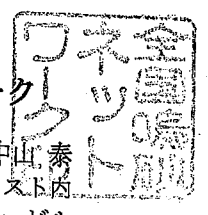 全国鳴砂
ネット
ワーク
ーク
中山 泰
スト内